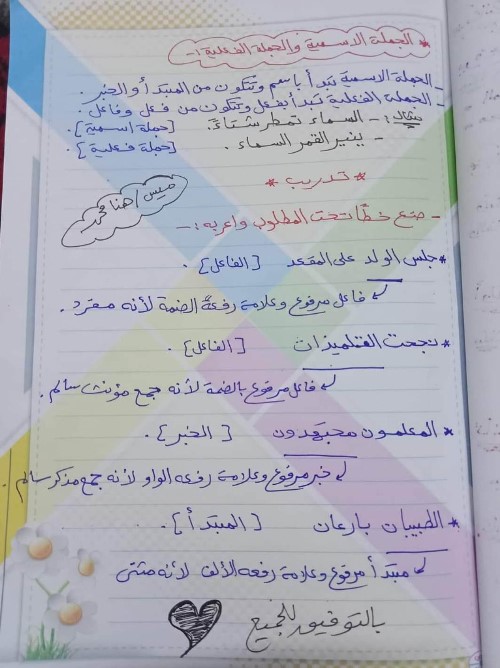 * الجملة الاسمية والجملة الفعلية :-
- الجملة الاسمية تبدأ باسم وتتكون من المبتدأ والخبر .
- الجملة الفعلية تبدأ بفعل وتتكون من فعل وفاعل .
مثال :- السماء تمطر شتاءً. [جملة اسمية].
- ينير القمر السماء . [جملة فعلية].
* تدريب *
ميس / هنا محمد
- ضع خطًا تحت المطلوب واعربه :-
* جلس الولد على المقعد [الفاعل] .
فاعل مرفوع وعلامة رفعه الضمة لأنه مفرد .
* نجحت التلميذات [الفاعل] .
فاعل مرفوع بالضمة لأنه جمع مؤنث سالم .
* المعلمون مجتهدون [الخبر] .
خبر مرفوع وعلامة رفعه الواو لأنه جمع مذكر سالم .
* الطبيبان بارعان [المبتدأ] .
مبتدأ مرفوع وعلامة رفعه الألف لأنه مثنى
بالتوفيق للجميع